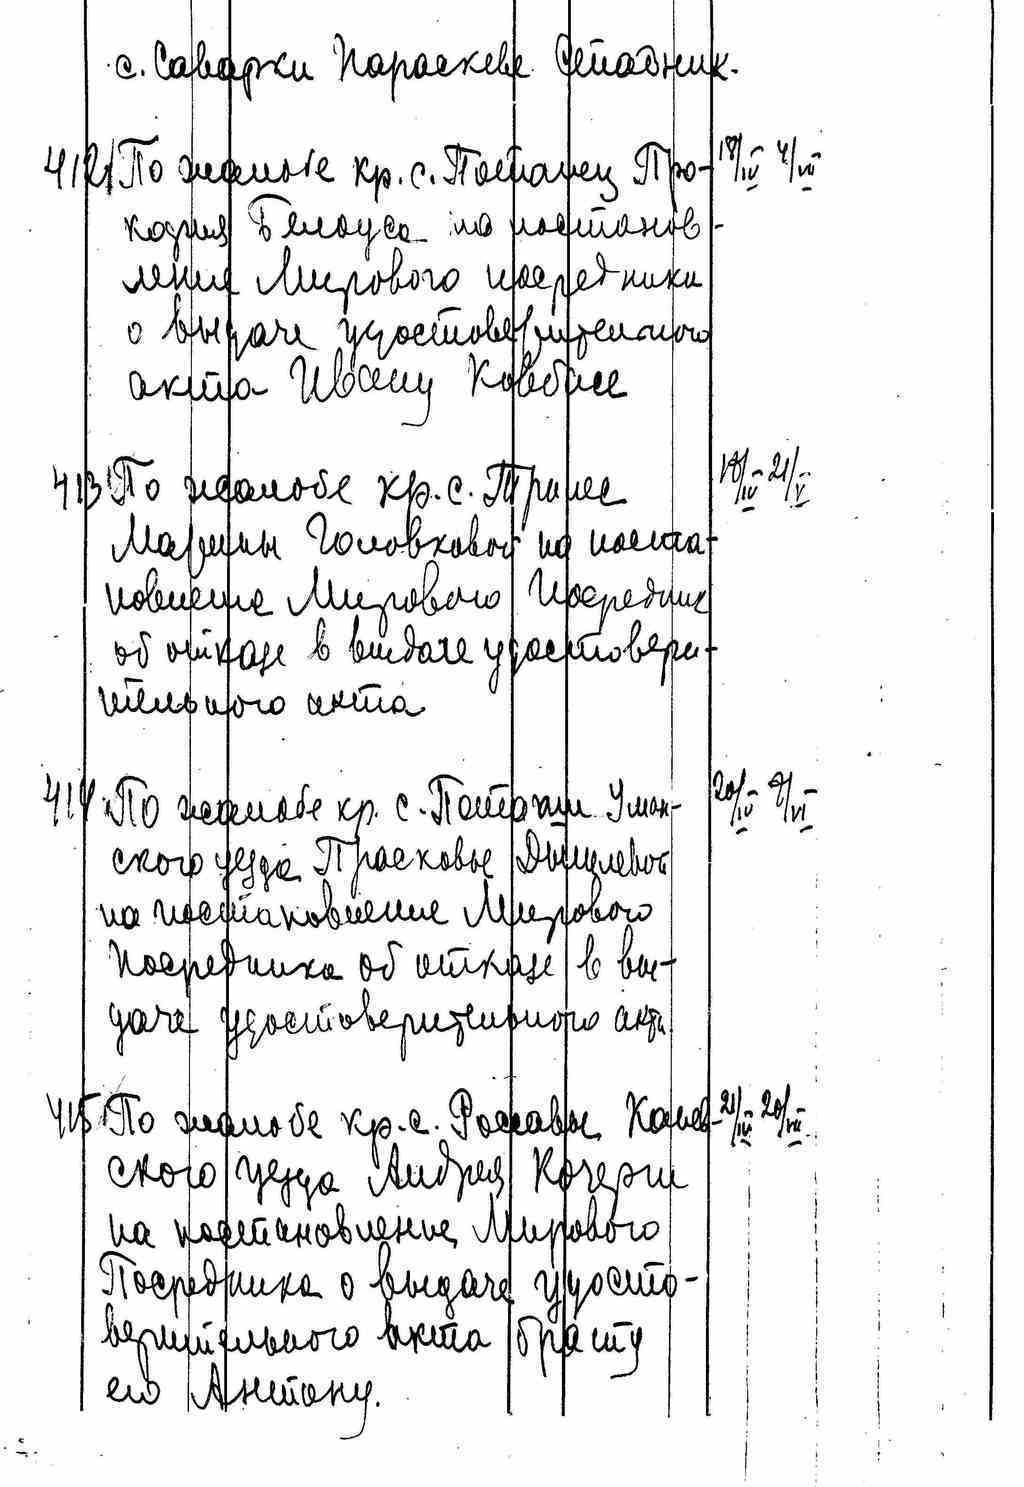 с. Саварки Параскеве Степадник.
412 По жалобе кр. с. Поташец Про- 18/IV 4/VII
кофия Белоуса на постанов-
ление Мирового посредника
о выдаче удостоверительного
акта Ивану Ковбасе
413 По жалобе кр. с. Трилес 18/IV 21/V
Марины Головковой на поста-
новление Мирового Посредник
об отказе в выдаче удостовери-
тельного акта
414 По жалобе кр. с. Поташи Уман- 20/IV /VI
ского уезда Прасковье
на постановление Мирового
Посредника об отказе в вы-
даче удостоверительного акта
415 По жалобе кр. с. Россавы Канев- 21/IV 20/VII
ского уезда Андрея Кочерги
на постановление Мирового
Посредника о выдаче удосто-
верительного акта брату
его Антону.